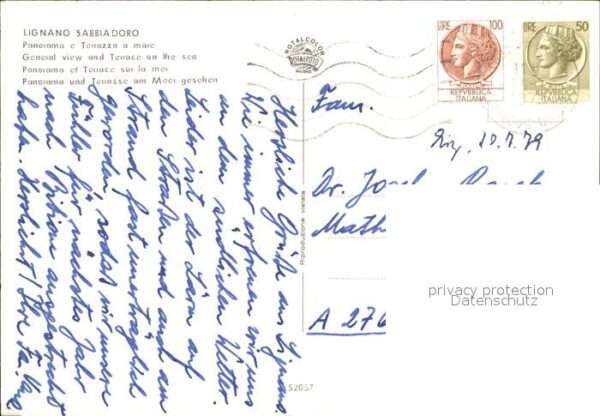 LIGNANO SABBIADORO
Panorama e Terrazza a mare
General view and Terrace on the sea
Panorama et Terrace sur la mer
Panorama und Terrasse am Meer gesehen
ROTALCOLOR
ROTALFOTO
MILANO
LIRE 100
REPVBBLICA
ITALIANA
LIRE 50
REPVBBLICA
ITALIANA
Fam.
Dr. Josef
Math
A 276
Riproduzione vietata
52087
privacy protection
Datenschutz
Herzliche Grüße aus Lignano.
Wie immer erfreuen wir uns
an dem südlichen Wetter.
Leider ist der Lärm auf
den Straßen und auch am
Strand fast unerträglich
geworden, sodaß wir unsere
Fühler für nächstes Jahr
nach ausgestreckt
haben. Herzlichst Ihre Fa.